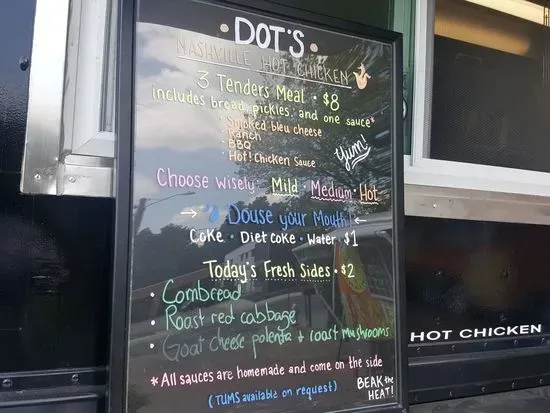 DOT'S
NASHVILLE HOT CHICKEN
3 Tenders Meal • $8
includes bread, pickles, and one sauce*
• Smoked bleu cheese
• Ranch
• BBQ
• Hot! Chicken Sauce
Yum!
Choose wisely: Mild • Medium • Hot
→ Douse your Mouth! ←
Coke • Diet Coke • Water • $1
Today's Fresh Sides • $2
• Cornbread
• Roast red cabbage
• Goat cheese polenta + roast mushrooms
*All sauces are homemade and come on the side
(TUMS available on request)
BEAK the
HEAT!
HOT CHICKEN